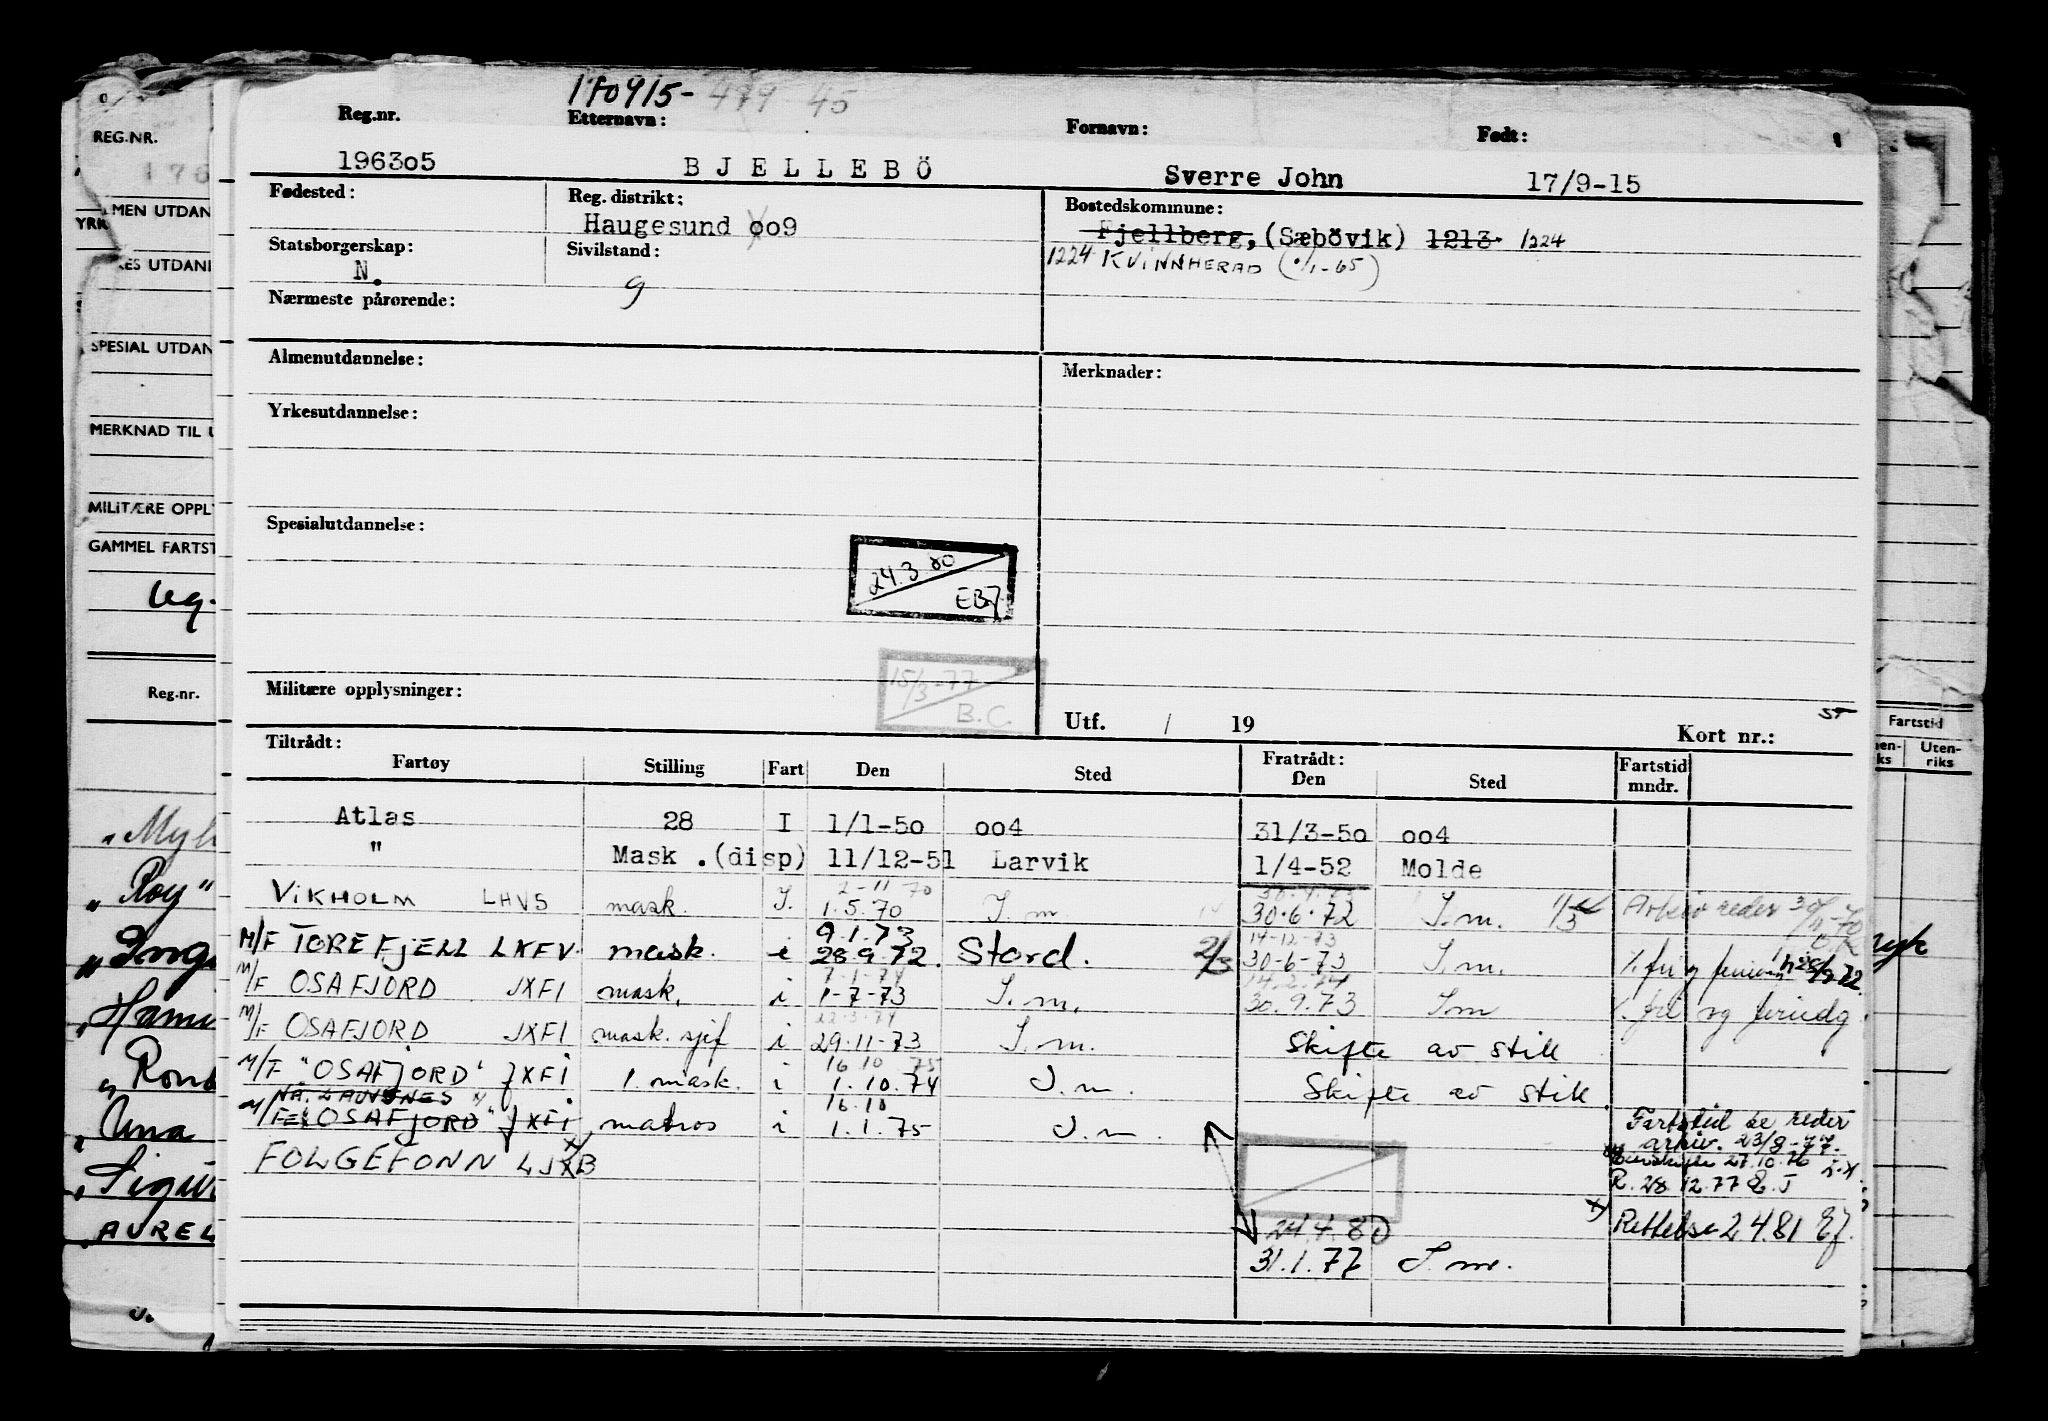 170915- 479 45
Reg.nr. Etternavn: Fornavn: Født:
196305 BJELLEBÖ Sverre John 17/9-15
Fødested: Reg. distrikt: Bostedskommune:
Haugesund 009 Fjellberg, (Sæbövik) 1213. 1224
Statsborgerskap: Sivilstand: 1224 KVINNHERAD (1/1-65)
N. g
Nærmeste pårørende:
Almenutdannelse: Merknader:
Yrkesutdannelse:
Spesialutdannelse:
24.3 80
EBJ
15/3-77
B.C.
Militære opplysninger:
Utf. / 19 Kort nr.:
Tiltrådt: Fratrådt:
Fartøy Stilling Fart Den Sted Den Sted Fartstid mndr.
Atlas 28 I 1/1-50 004 31/3-50 004
" Mask.(disp) 11/12-51 Larvik 1/4-52 Molde
2-11 70 30.4.73
VIKHOLM LHVS mask. I. 1.5.70 I.m. 30.6.72 I.m. Arkiv reder 30/11-70
9.1.73 14-12-73
M/F TOREFJELL LKFV. mask. i 28.9.72. Stord. 2/3 30-6-73 I.m.
7-1-74 14.2.74
M/F OSAFJORD JXFI mask. i 1-7-73 I.m. 30.9.73 I.m
22-3-74
M/F OSAFJORD JXFI mask. sjef i 29.11-73 I.m. Skifte av still
16 10 75
M/F "OSAFJORD" JXFI 1. mask. i 1.10.74 I.m. Skifte av still.
NÅ. LAUVSNES 16.10
M/F "OSAFJORD" JXFI matros i 1.1.75 I.m.
FOLGEFONN LJXB
Fartstid se reder
arkiv. 23/8-77.
27.10.76
R. 28 12 77 E.J
24.4.80 Rettelse 2 4 81 EJ.
31.1.77 I.m.
REG.NR.
170
YRK
MEN UTDAN
KES UTDANI
SPESIAL UTDAN
MERKNAD TIL U
MILITÆRE OPPLY
GAMMEL FARTST
Ug.
Reg.nr.
Fartstid
Uten-
riks
"Myh
"Roy"
"Inga
"Ronb
"Una
"Sigur
"AUREL